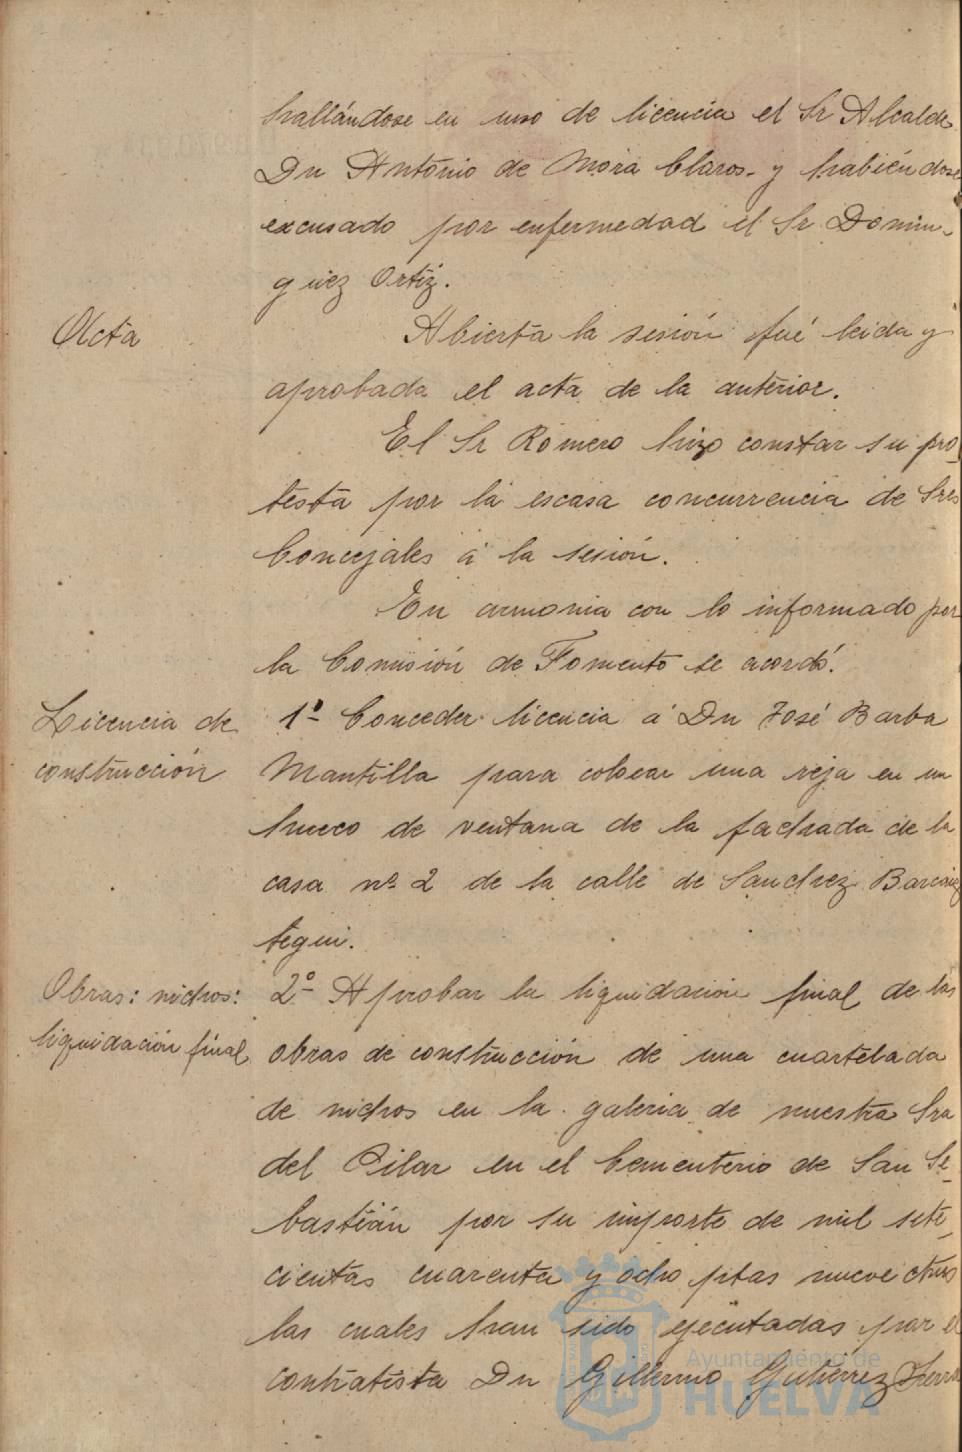 hallándose en uso de licencia el Sr Alcalde
Dn António de Mora Claros y habiéndose
excusado por enfermedad el Sr Domin-
guez Ortiz.
Acta
Abierta la sesión fué leida y
aprobada el acta de la anterior.
El Sr Romero hizo constar su pro-
testa por la escasa concurrencia de Sres
Concejales á la sesión.
En armonia con lo informado por
la Comisión de Fomento se acordó.
Licencia de
construcción
1º Conceder licencia á Dn José Barba
Mantilla para colocar una reja en un
hueco de ventana de la fachada de la
casa nº 2 de la calle de Sanchez Barcaiz
tegui.
Obras: nichos:
liquidación final
2º Aprobar la liquidación final de las
obras de construcción de una cuartelada
de nichos en la galeria de nuestra Sra
del Pilar en el Cementerio de San Se-
bastián por su importe de mil sete-
cientas cuarenta y ocho ptas nueve ctmos
las cuales han sido ejecutadas por el
contratista Dn Gillermo Gutiérrez Sierra
Ayuntamiento de
HUELVA